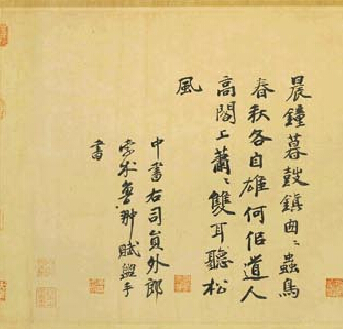 晨鐘暮鼓鎮〻蟲鳥
春秋各自雄何佀道人
高閣上蕭〻雙耳聽松
風
中書右司員外郎
孛朮魯翀賦盥手
書